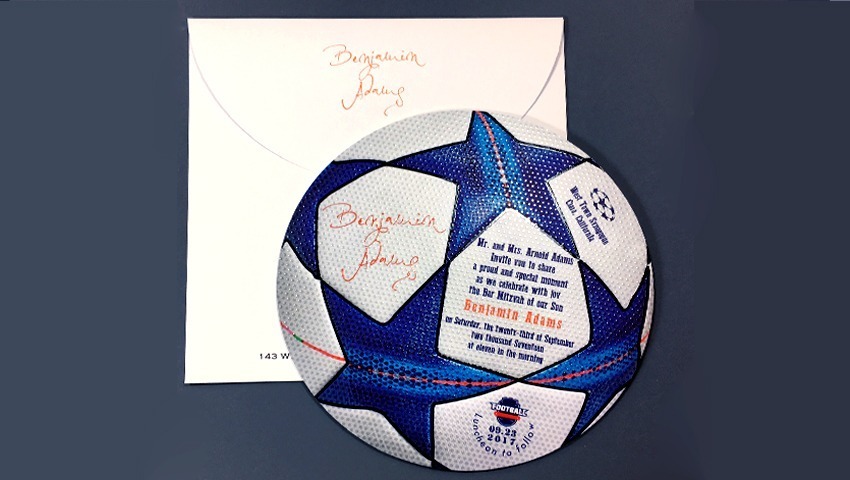 Benjamin
Adams
Benjamin
Adams
Mr. and Mrs. Arnold Adams
Invite you to share
a proud and special moment
as we celebrate with joy
the Bar Mitzvah of our Son
Benjamin Adams
on Saturday, the twenty-third of September
two thousand Seventeen
at eleven in the morning
West Town Synagogue
California
FOOTBALL
09.23
2017
Luncheon to follow
143 W